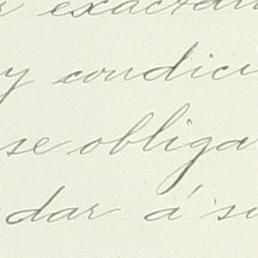 exactam
y condici
se obliga
dar á su